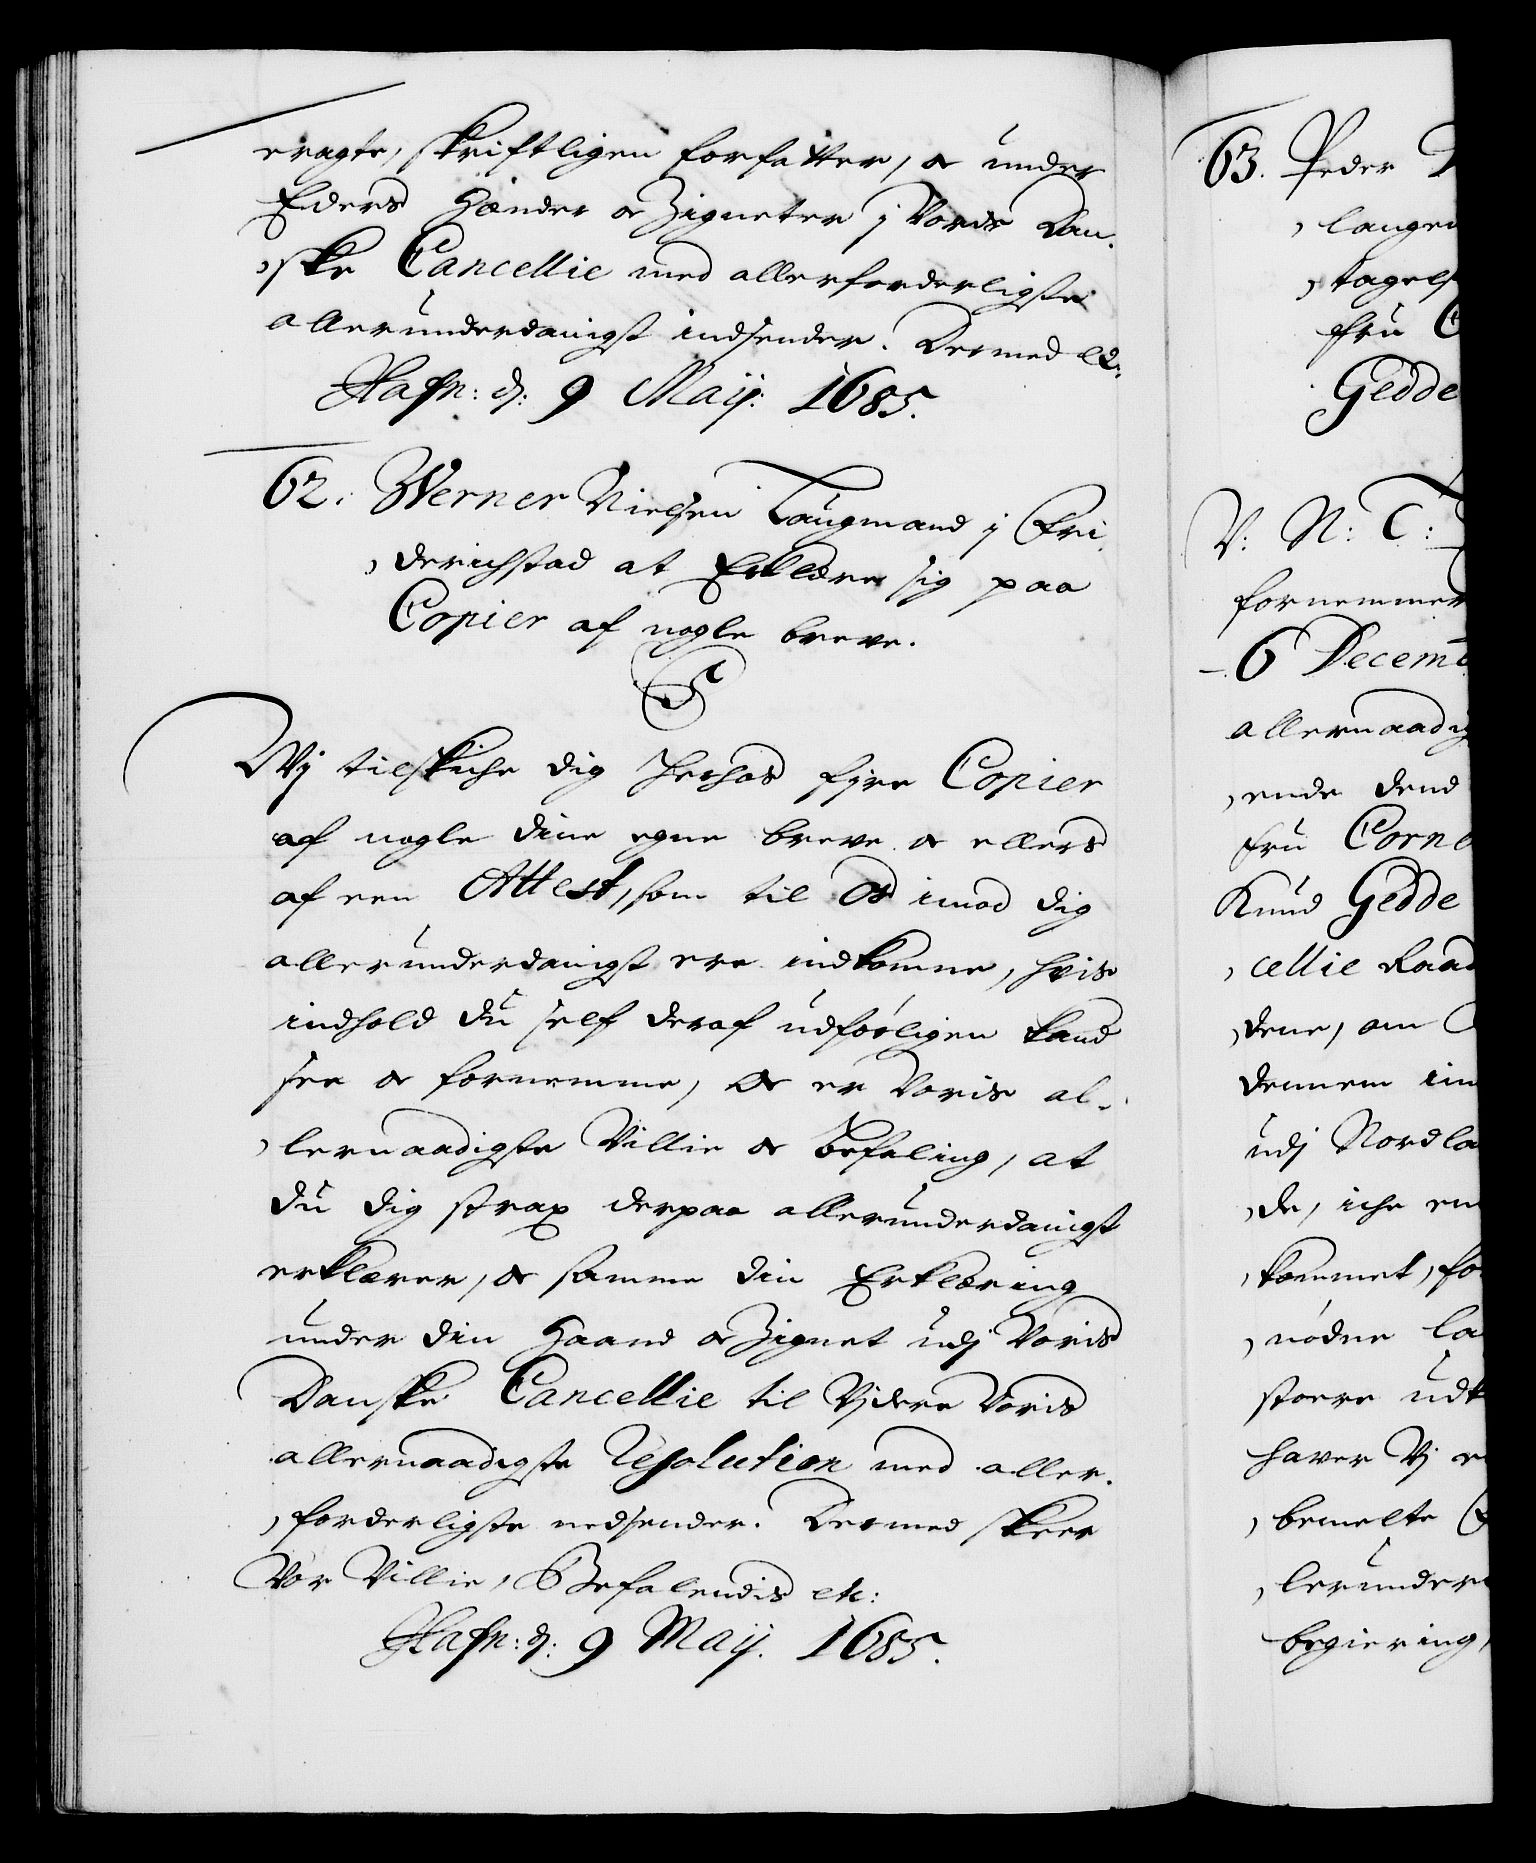 eragte, skriftligen forfatter, oc under
Eders Hænder oc Zigneter j Voris Dan-
ske Cancellie med allerforderligste
allerunderdanigst indsender. Dermed etc:
Hafn: d: 9 Maij: 1685.
62. Werner Nielsen Laugmand j Fri-
derichstad at Erklære sig paa
Copier af nogle breve.
S
Wij tilskiche dig herhos fyre Copier
af nogle dine egne breve oc ellers
af een Attest, som til Os imod dig
allerunderdanigst ere indkomne, hvis
indhold du self deraf udførligen kand
see oc fornemme, Oc er Voris al-
lernaadigste Villie oc befaling, at
du dig strax derpaa allerunderdanigst
erklærer, oc samme din Erklæring
under din Haand oc Zignet udj Voris
Danske Cancellie til Vjdere Voris
allernaadigste Resolution med aller-
forderligste nedsender. Dermed skeer
Vor Villie, Befalendis etc:
Hafn: d: 9 Maij. 1685.
63. Peder
langen
tagels
Fru C
Gedde
V: N: T:
fornemmer
6 Decemb
allernaadig
ende dend
Fru Corne
Knud Gedde
cellie Raad
dene, om
dennem im
udj Nordla
de, iche en
kommet, fo
nødne la
stoere udk
haver Vj e
bemelte
lerunder
begiering,